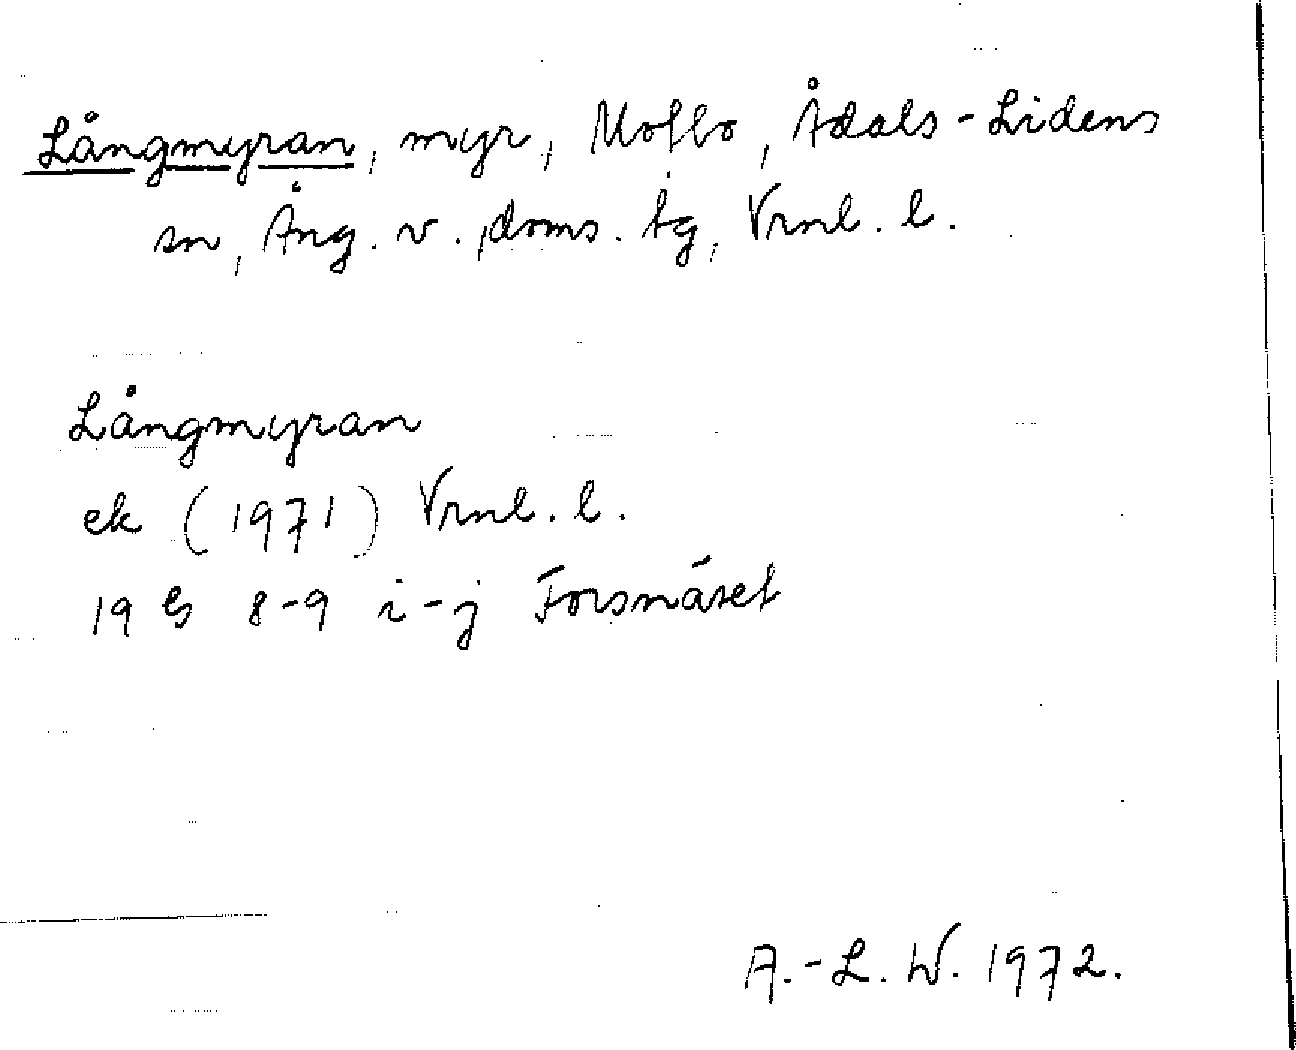 Långmyran, myr, Moflo, Ådals-Lidens
sn, Ång. v., doms. tg, Vrnl. l.
Långmyran
ek (1971) Vrnl. l.
19 G 8-9 i-j Forsnäset
A.-L. W. 1972.